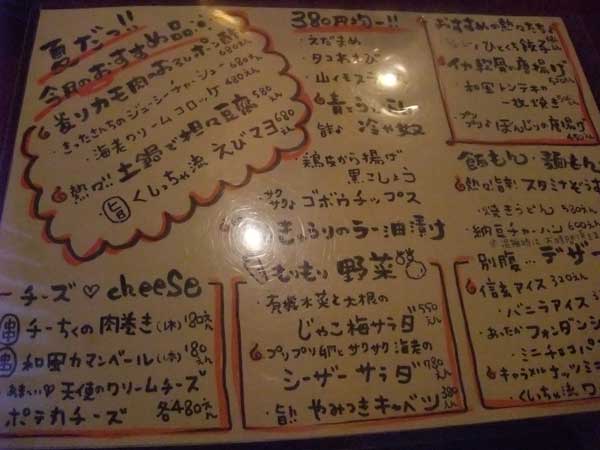 夏だっ!!
今月のおすすめ品
炭リカモ肉のおろしポン酢 680えん
きったさんちのジューシーチャーシュー 680えん
海老クリームコロッケ 480えん
熱々!! 土鍋で坦々豆腐 580えん
旨 くしっちゃ流 えびマヨ 680えん
380円均一!!
・えだまめ
・タコわさび
・山イモ
冷や奴
鶏皮から揚げ
黒こしょう
サクサクッ ゴボウチップス
きゅうりのラー油漬け
おすすめの熱々たち
ひとくち餃子
イカ軟骨の唐揚げ
和風トンテキの
一枚焼き
ぼんじりの唐揚げ
飯もん・麺もん
熱々旨辛! スタミナぞうす
・焼きうどん 580えん
・納豆チャーハン 600えん
別腹…デザー
・信玄アイス 320えん
・バニラアイス 3
フォンダンシ
・ミニチョコパ
キャラメルナッツミニ
・くしっちゃ流 ワ
チーズ♡cheese
串 チーちくの肉巻き (1本) 180えん
串 和風カマンベール (1本) 180えん
・あまーい♡ 天使のクリームチーズ
ポテカチーズ 各480えん
もりもり野菜
・有機水菜と大根の
じゃこ梅サラダ 550えん
プリプリ卵とサクサク海老の
シーザーサラダ 780えん
・旨!! やみつきキャベツ 380えん